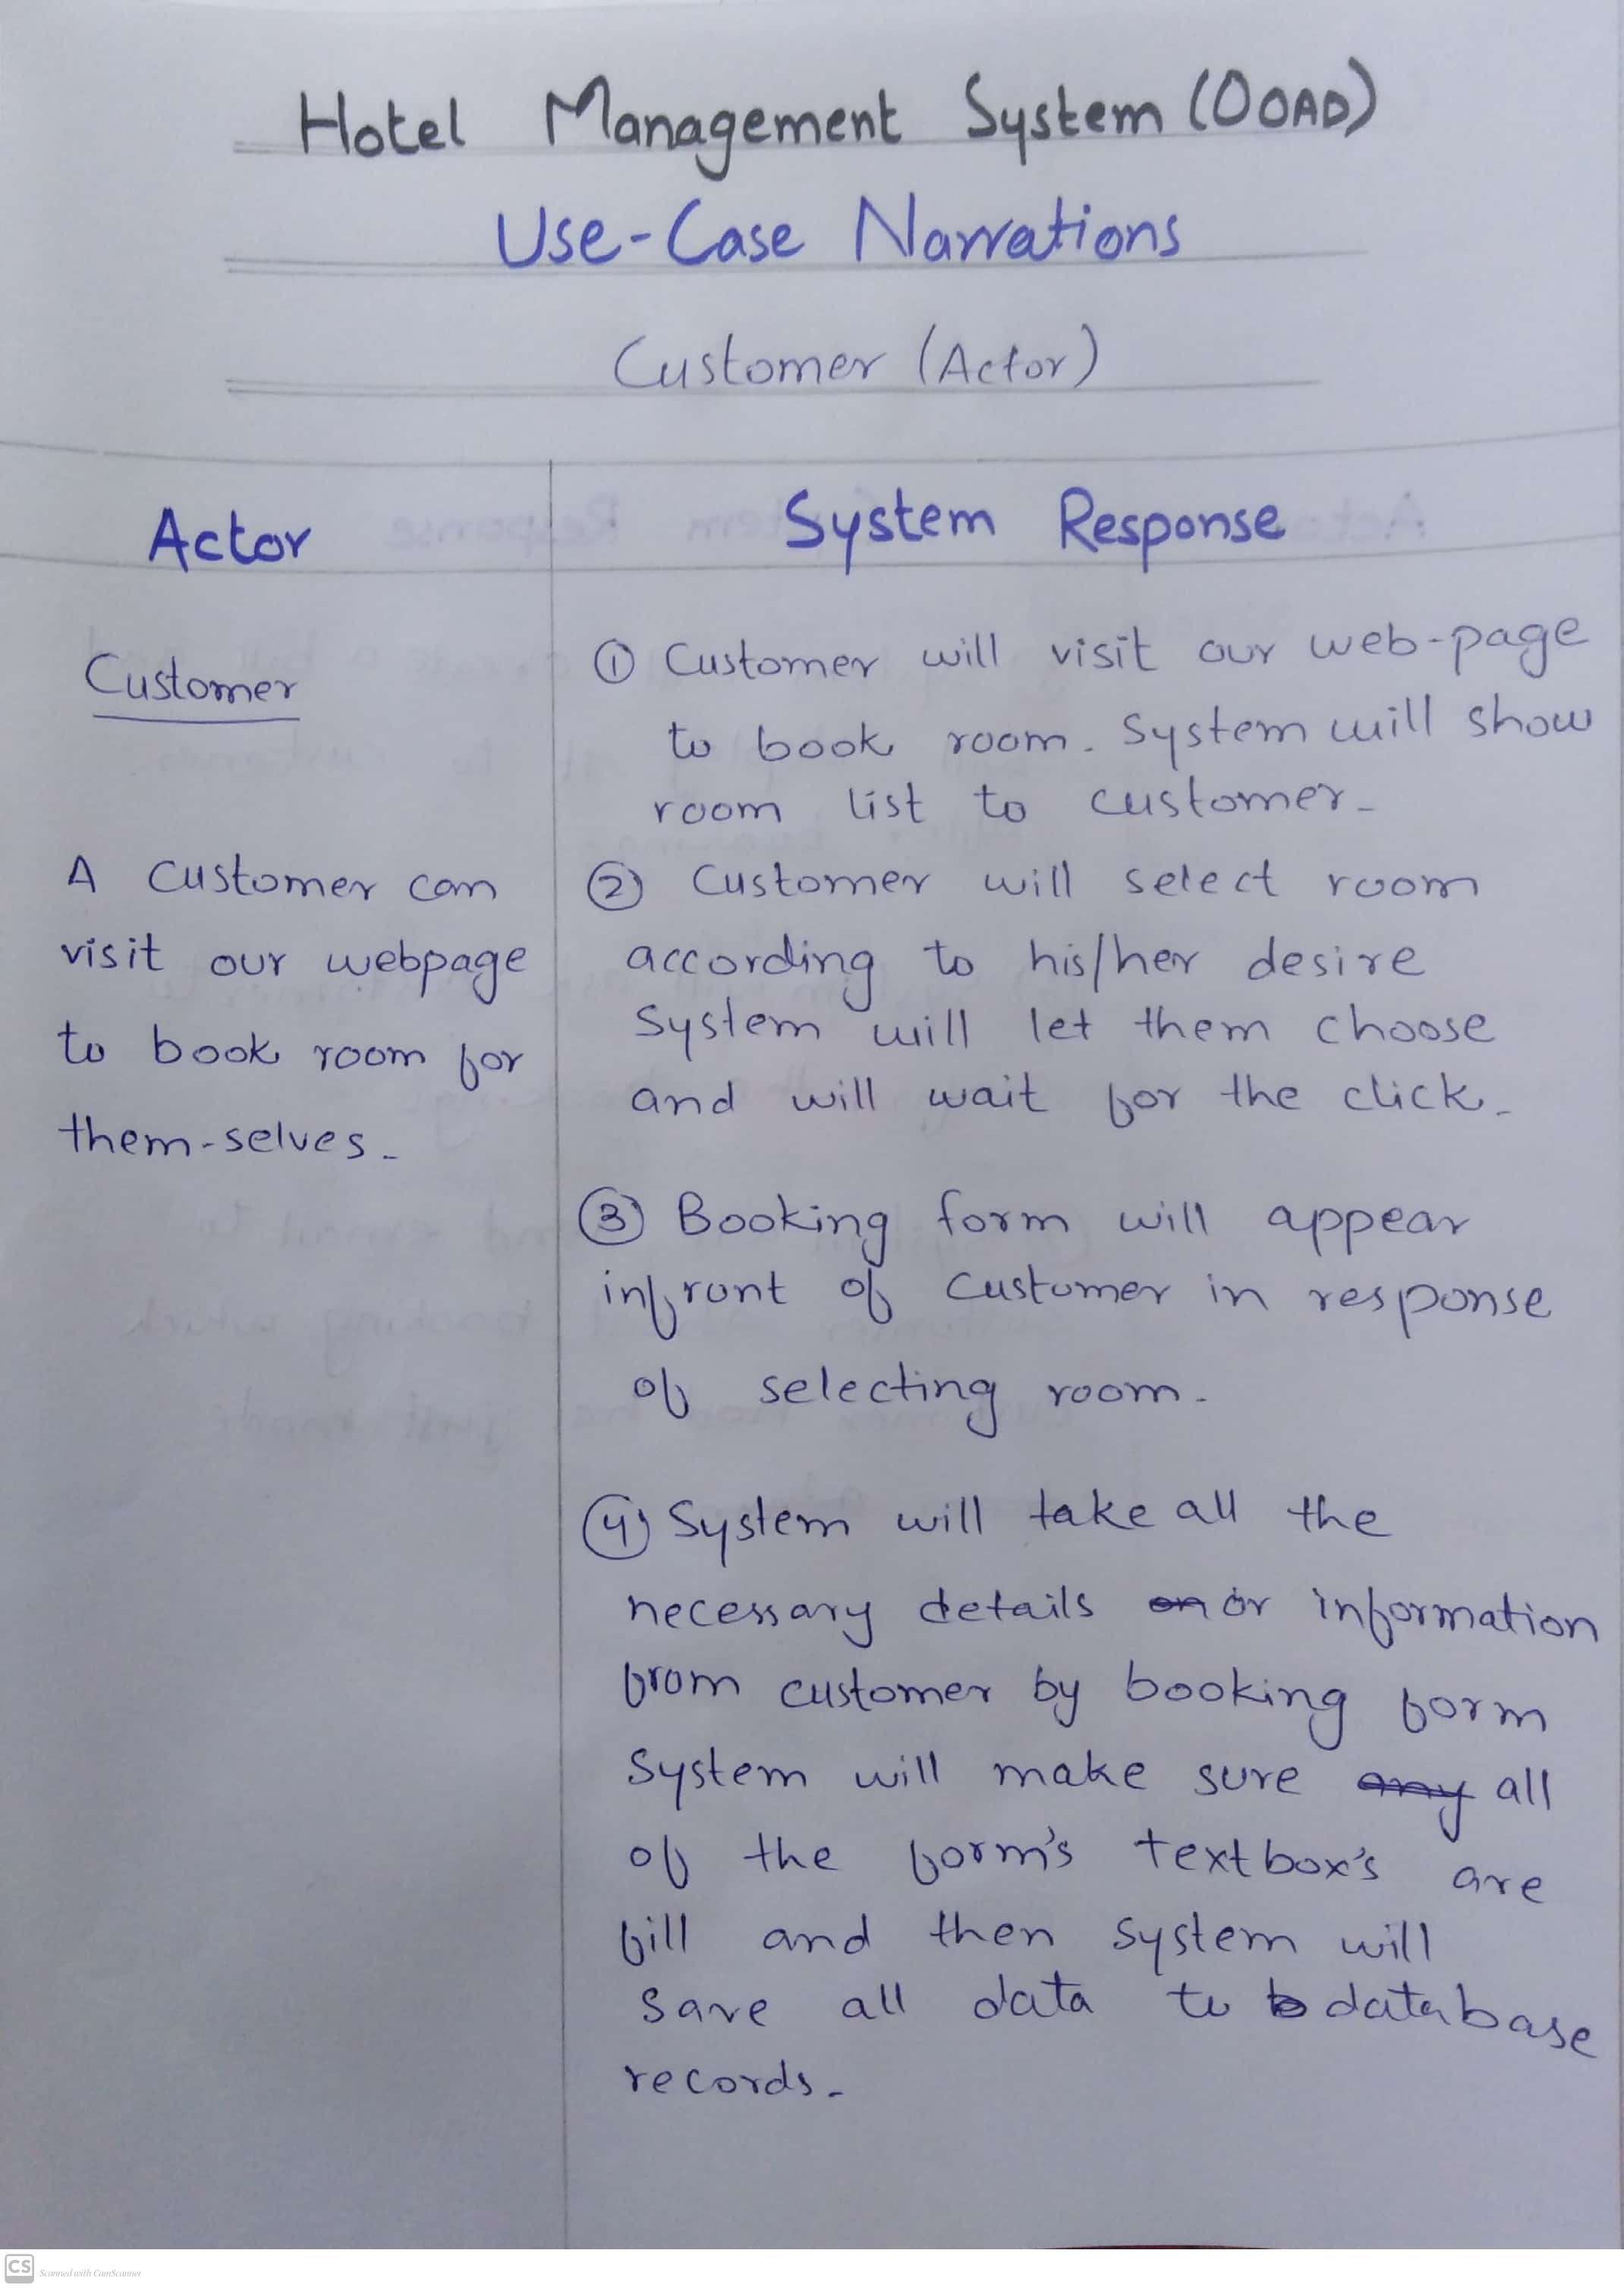 Hotel Management System (OOAD)
Use-Case Narrations
Customer (Actor)
Actor
System Response
Customer
A customer can
visit our webpage
to book room for
them-selves.
① Customer will visit our web-page
to book room. System will show
room list to customer.
② Customer will select room
according to his/her desire
System will let them choose
and will wait for the click.
③ Booking form will appear
infront of customer in response
of selecting room.
④ System will take all the
necessary details or information
from customer by booking form
System will make sure any all
of the form's textbox's are
fill and then system will
save all data to database
records.
CS Scanned with CamScanner